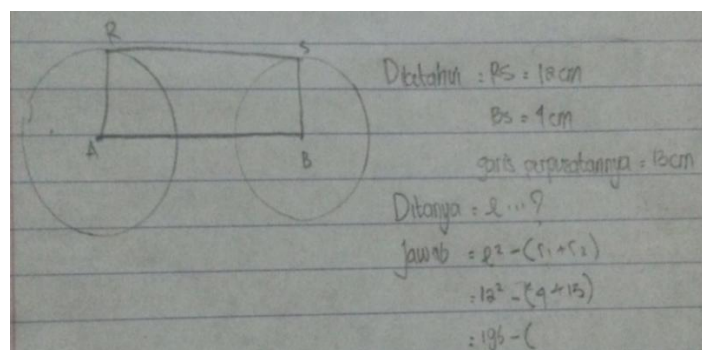 R
S
A
B
Diketahui = RS = 12 cm
BS = 4 cm
garis perpusatannya = 13 cm
Ditanya = l ... ?
Jawab = l² - (r₁ + r₂)
= 12² - (4 + 13)
= 196 - (